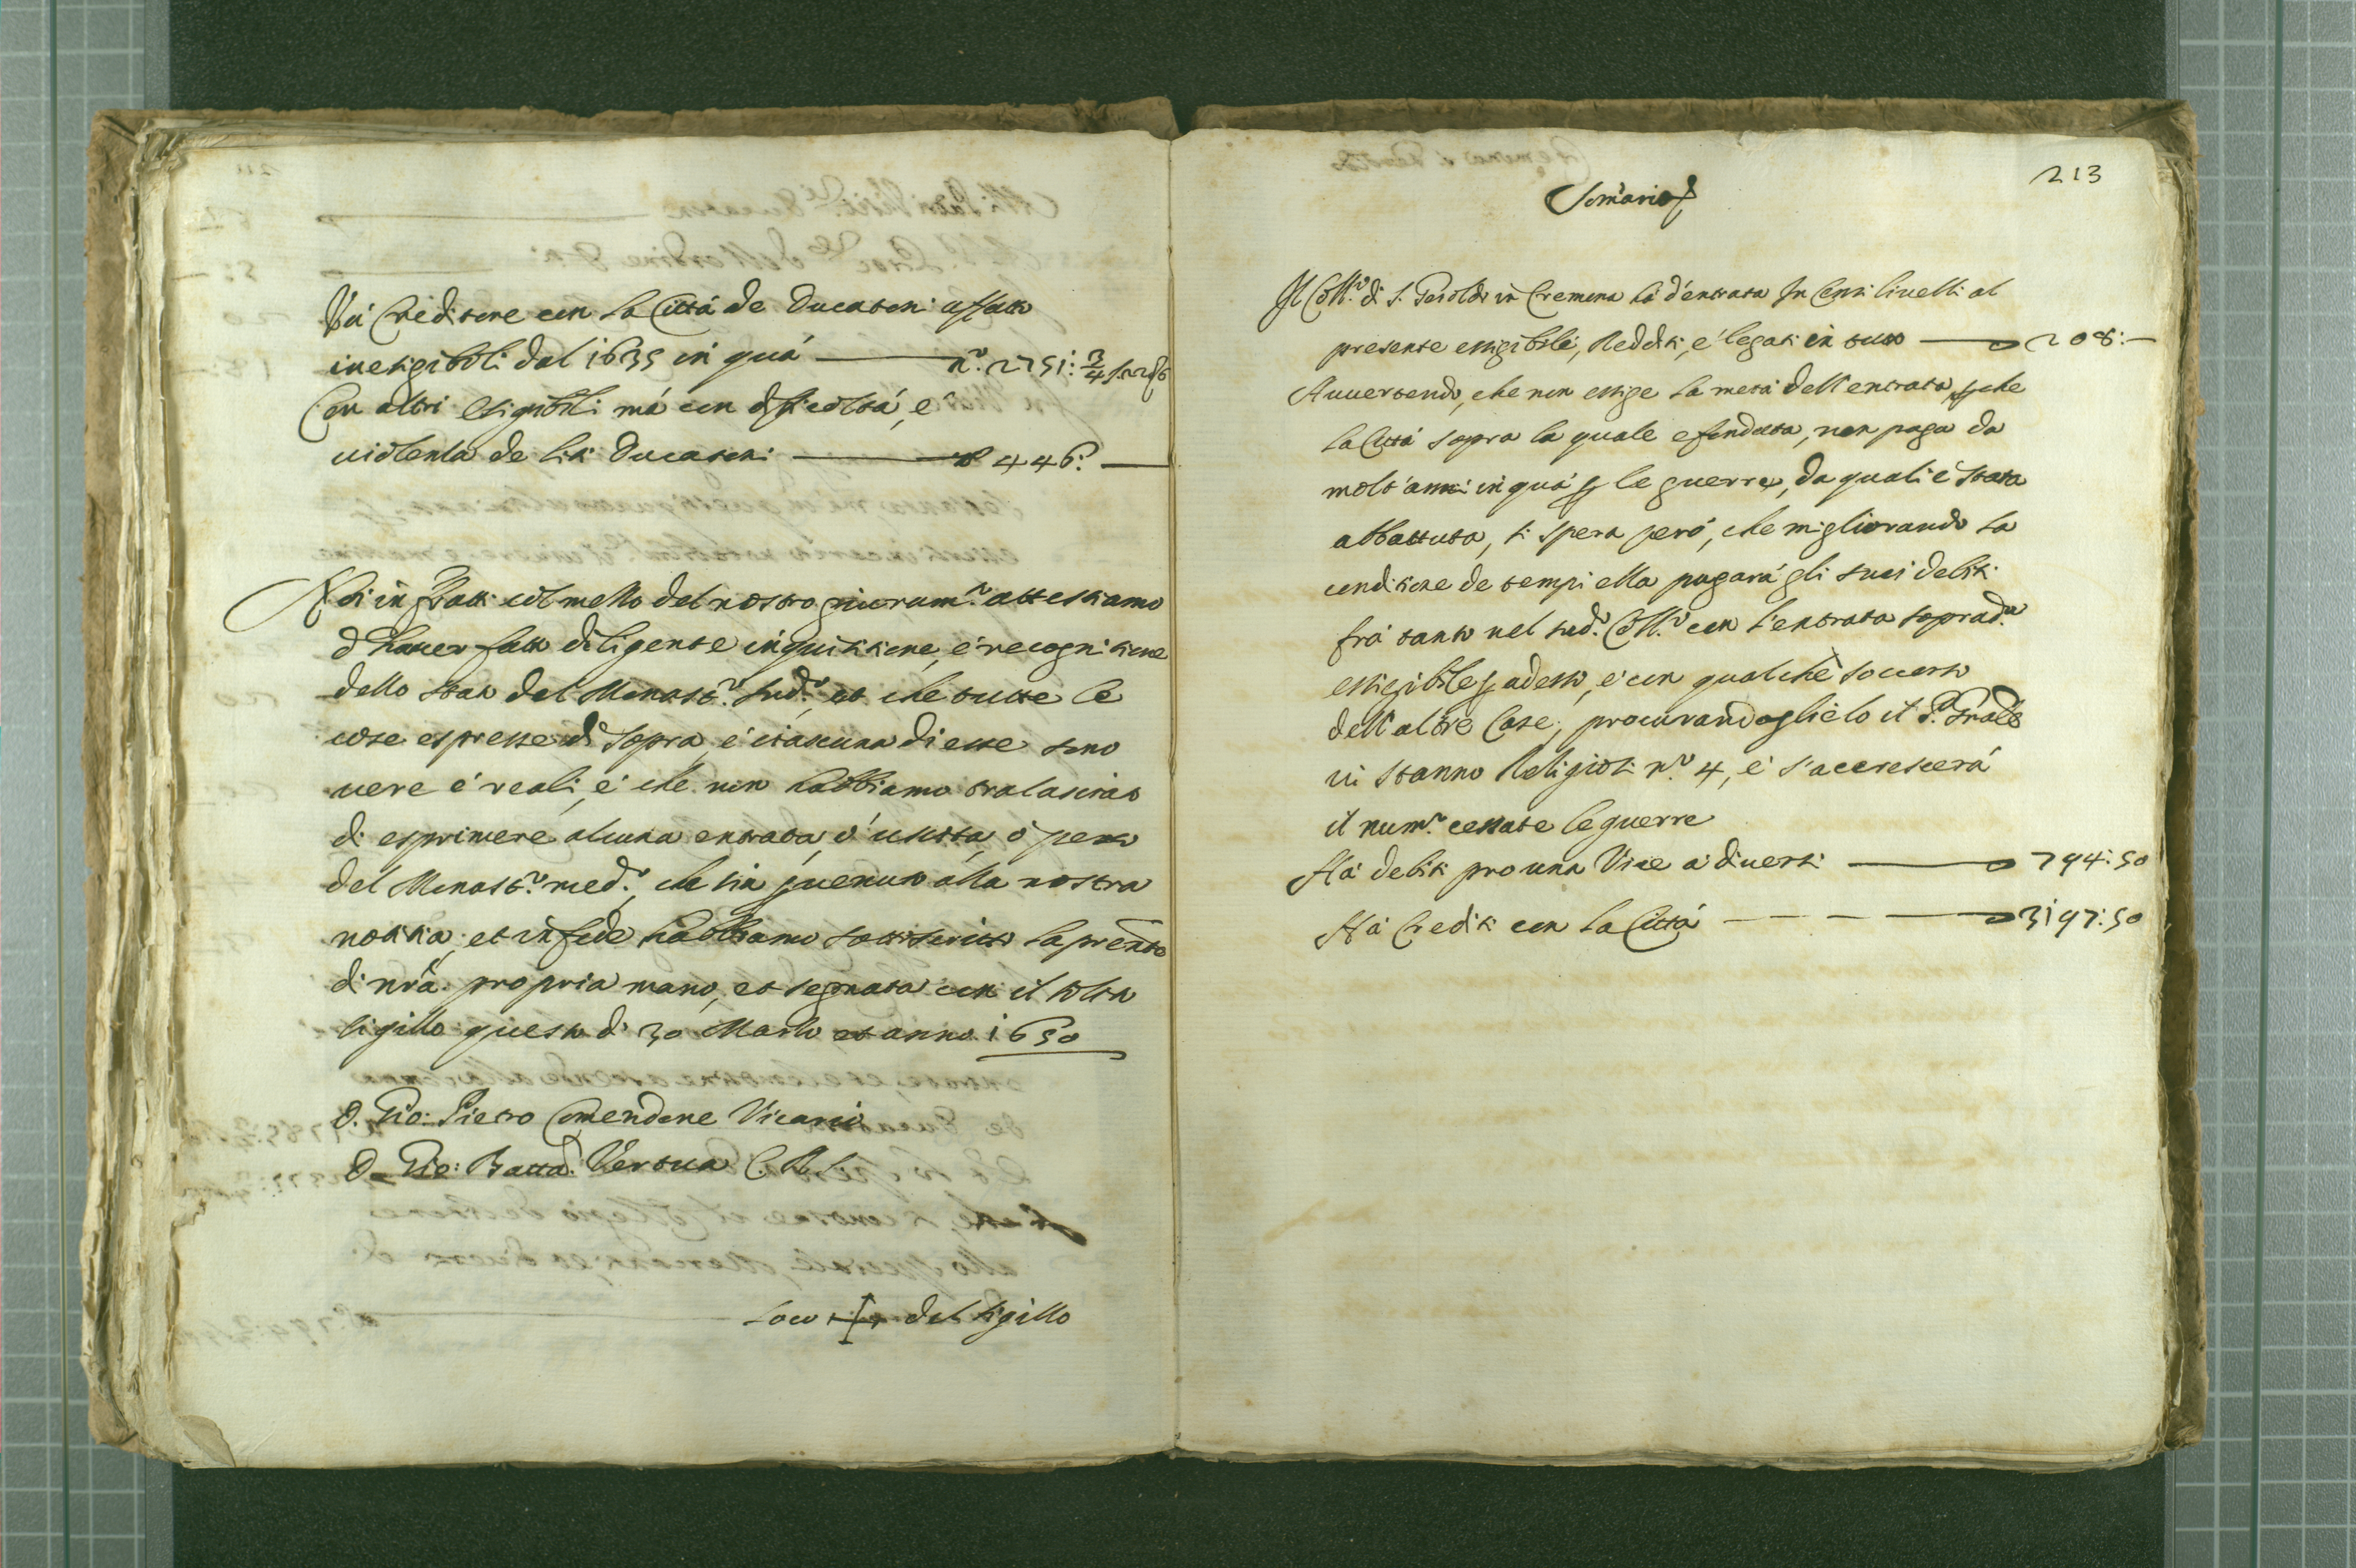 Và Creditore con la Città de Ducatoni affatto
inesigibili dal 1635 in quà n.º 2751: 3/4
Con altri esigibili mà con dificoltà, e
violenza de liti Ducatoni 446:
Noi infratti col mezzo del nostro giuram.º attestiamo
d'haver fatto diligente inquisitione, è recognitione
dello stato del Monast.º sud.º, et che tutte le
cose espresse di sopra, è ciascuna di esse sono
vere è reali, è che non habbiamo tralasciato
di esprimere alcuna entrata, ò uscita, ò peso
del Monast.º med.º, che sia pvenuto alla nostra
notitia; et in fede habbiamo sottoscritto la prente
di nrã propria mano, et segnata con il solito
sigillo questo dì 30 Marzo et anno 1650
D. Gio: Pietro Comendone Vicario
D. Gio: Batta Vertua C. R. S.
Loco + del sigillo
213
Somario
Il Coll.º di S. Geroldo in Cremona hà d'entrata In Censi livelli al
presente essigibili, Redditi, è legati in tutto 208:—
Avvertendo, che non essige la metà dell'entrata pche
la Città sopra la quale è fondata, non paga da
molt'anni in quà p le guerre, da quali è stata
abbattuta, si spera però, che migliorando la
conditione de tempi ella pagarà gli suoi debiti
frà tanto nel sud.º Coll.º con l'entrata soprad.ª
essigibile p adesso, è con qualche soccorso
dell'altre Case, procurandoglielo il P. Grãle
vi stanno Religiosi n.º 4, è s'accrescerà
il num.º cessate le guerre
Hà debiti pro una Vice à diversi 794:50
Hà Crediti con la Città 3197:50